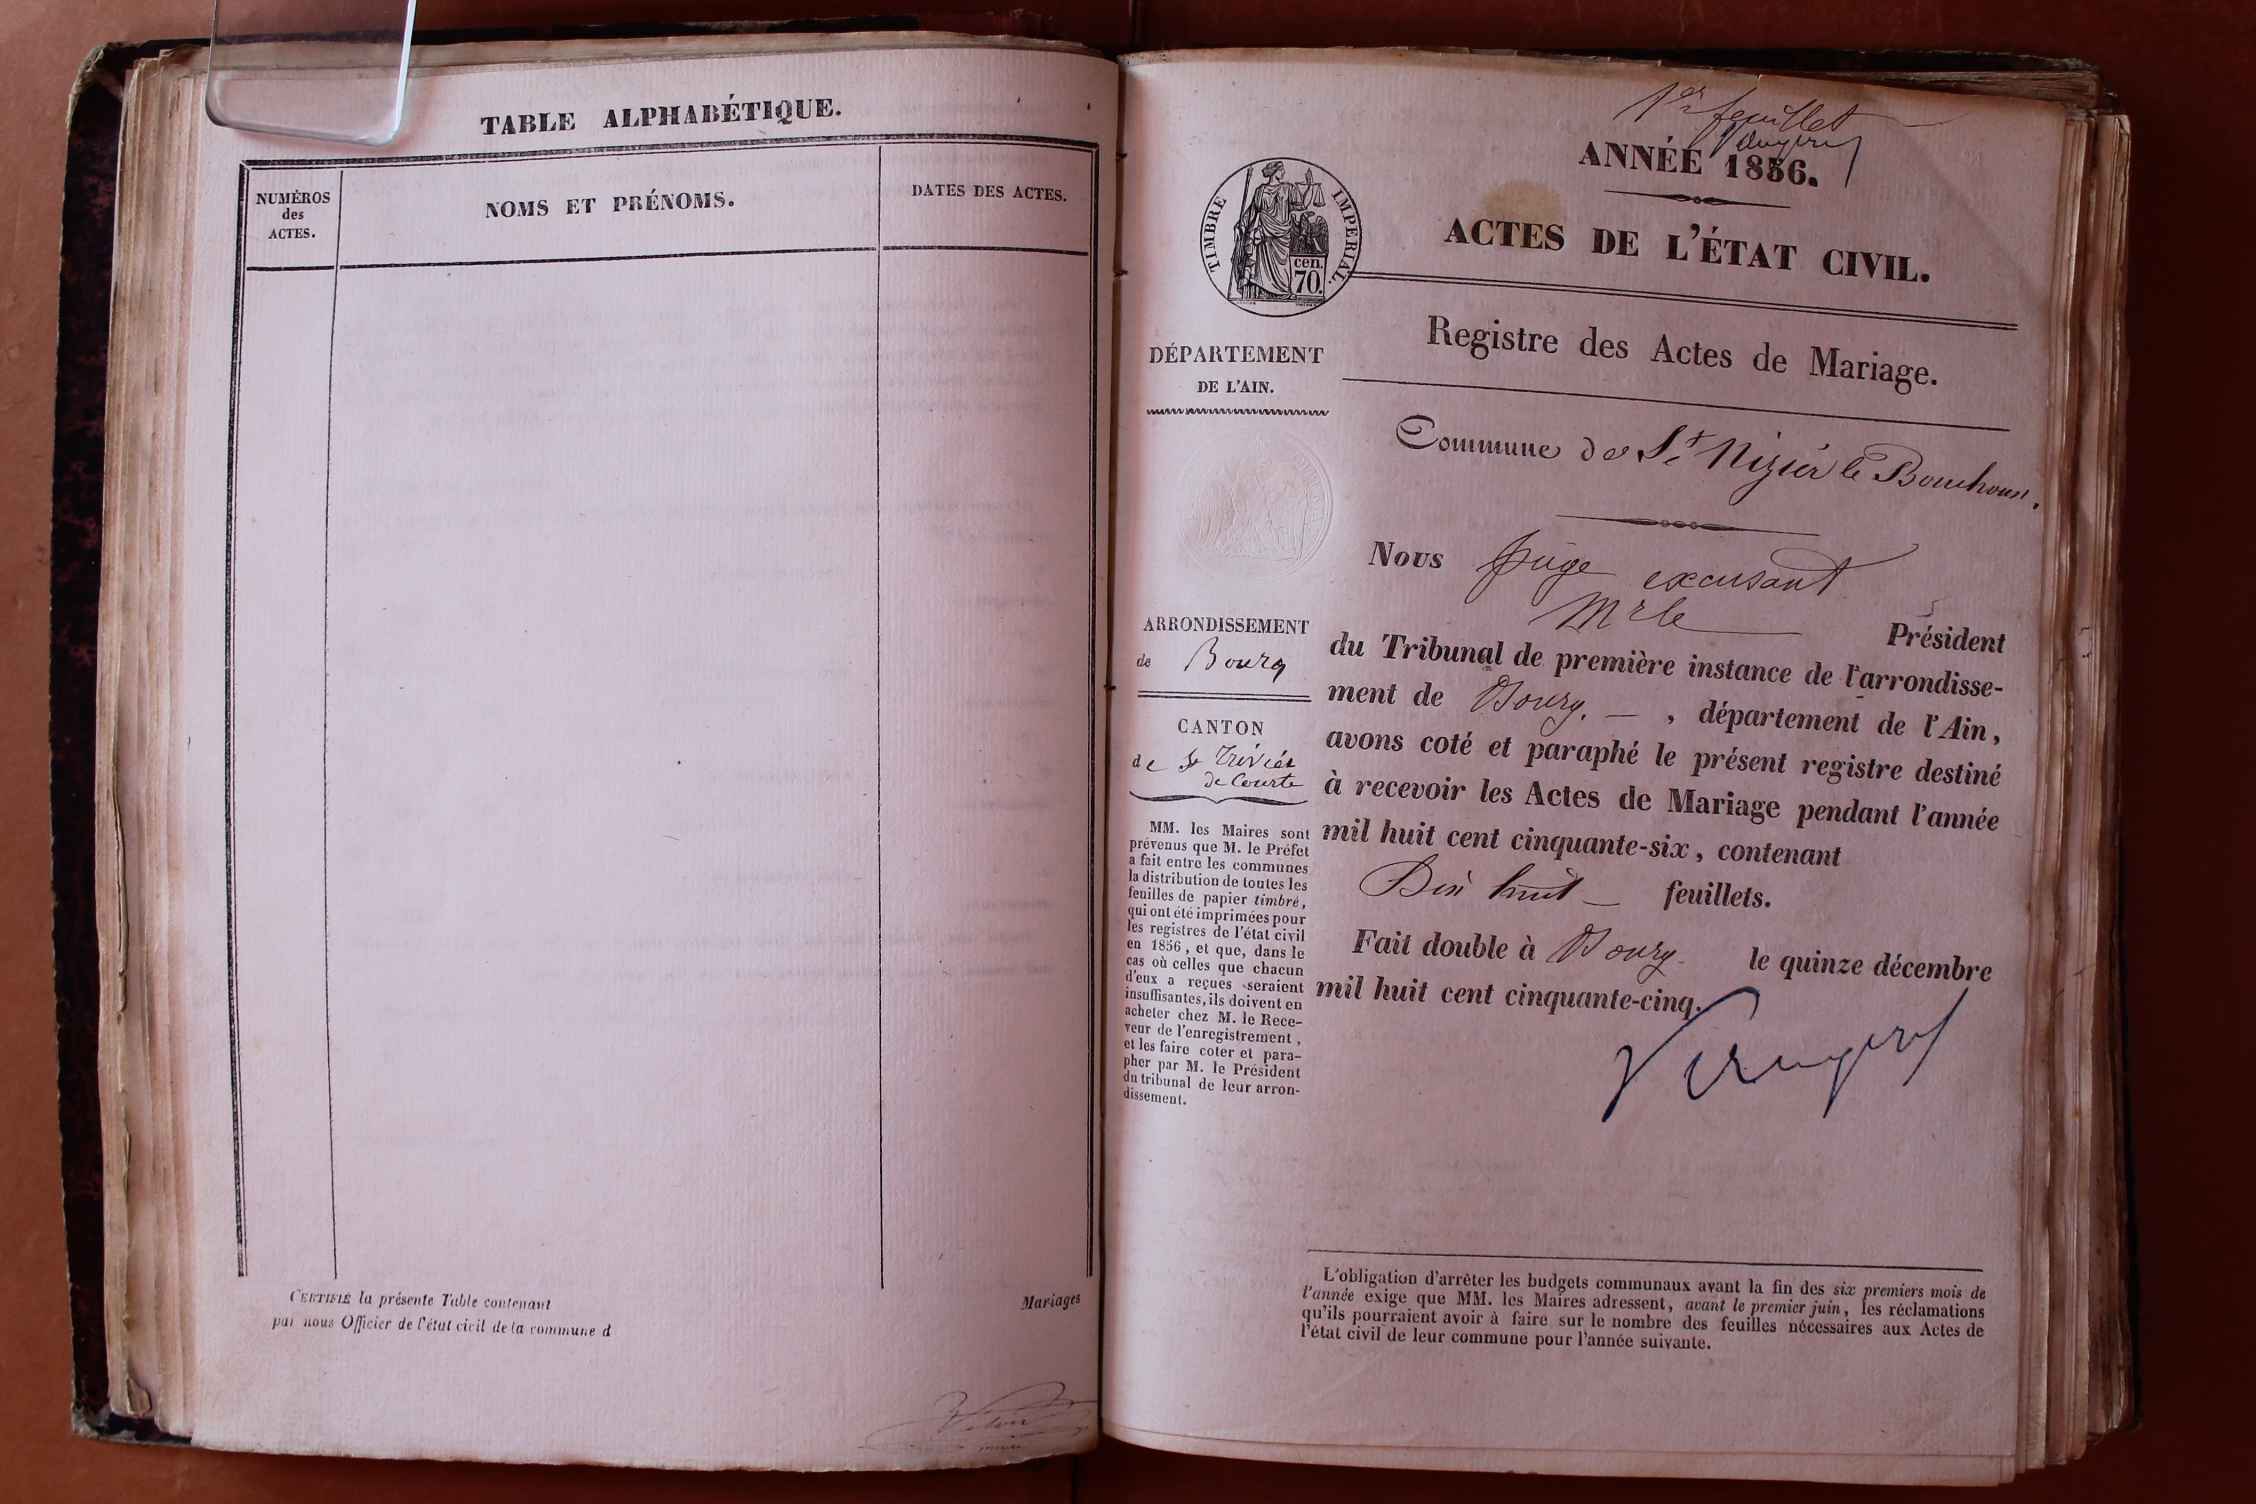 TABLE ALPHABÉTIQUE.
NUMÉROS
des
ACTES.
NOMS ET PRÉNOMS.
DATES DES ACTES.
CERTIFIÉ la présente Table contenant
Mariages
par nous Officier de l'état civil de la commune d
1er feuillet
ANNÉE 1856.
TIMBRE IMPERIAL.
cen.
70.
ACTES DE L'ÉTAT CIVIL.
Registre des Actes de Mariage.
DÉPARTEMENT
DE L'AIN.
Commune de St Nizier le Bouchoux.
ARRONDISSEMENT
de Bourg
CANTON
de St Trivier
de Courte
MM. les Maires sont
prévenus que M. le Préfet
a fait entre les communes
la distribution de toutes les
feuilles de papier timbré,
qui ont été imprimées pour
les registres de l'état civil
en 1856, et que, dans le
cas où celles que chacun
d'eux a reçues seraient
insuffisantes, ils doivent en
acheter chez M. le Rece-
veur de l'enregistrement,
et les faire coter et para-
pher par M. le Président
du tribunal de leur arron-
dissement.
Nous Juge excusant
Mr le Président
du Tribunal de première instance de l'arrondisse-
ment de Bourg. — , département de l'Ain,
avons coté et paraphé le présent registre destiné
à recevoir les Actes de Mariage pendant l'année
mil huit cent cinquante-six, contenant
Dix huit — feuillets.
Fait double à Bourg le quinze décembre
mil huit cent cinquante-cinq.
L'obligation d'arrêter les budgets communaux avant la fin des six premiers mois de
l'année exige que MM. les Maires adressent, avant le premier juin, les réclamations
qu'ils pourraient avoir à faire sur le nombre des feuilles nécessaires aux Actes de
l'état civil de leur commune pour l'année suivante.